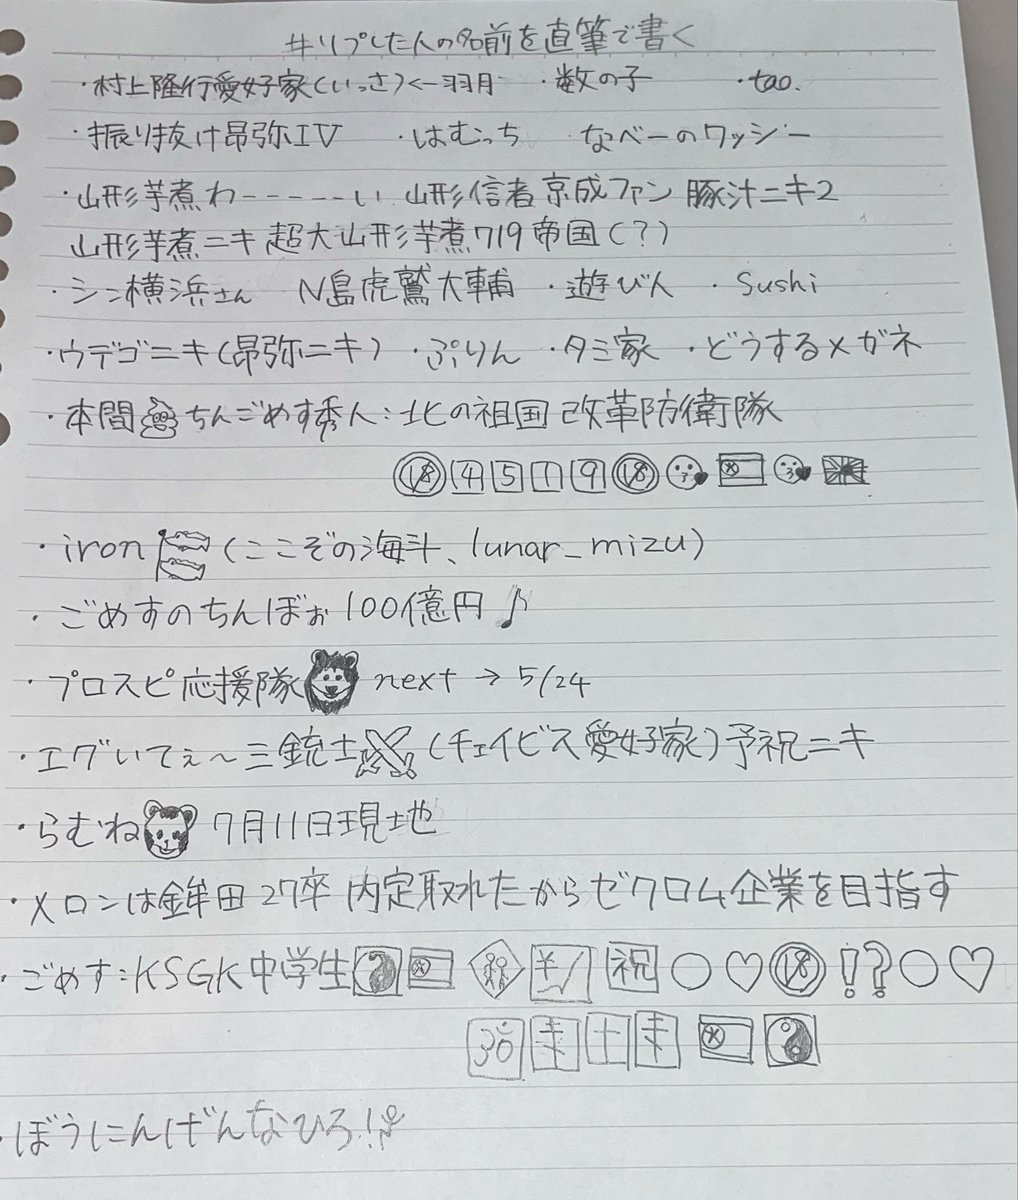 #リプした人の名前を直筆で書く
・村上隆行愛好家(いっさ)←羽月 ・数の子 ・tao.
・振り抜け昂弥IV ・はむっち なべーのワッジー
・山形芋煮わーーーーーい 山形信者 京成ファン 豚汁ニキ2
山形芋煮ニキ 超大山形芋煮719帝国(?)
・シン横浜さん N島虎鷲大輔 ・遊び人 ・Sushi
・ウデゴニキ(昂弥ニキ) ・ぷりん ・タミ家 ・どうするメガネ
・本間 ちんごめす秀人:北の祖国 改革防衛隊
🔞4519🔞
・iron🎏(ここぞの海斗、lunar_mizu)
・ごめすのちんぼぉ100億円♪
・プロスピ応援隊🐻 next→5/24
・エグいてぇ〜三銃士⚔(チェイビス愛好家)予祝ニキ
・らむね🐯 7月11日現地
・メロンは鉾田 27卒 内定取れたからゼクロム企業を目指す
・ごめす:KSGK中学生☯ 祝○♡🔞!?○♡
🕉 ☯
・ぼうにんげんなひろ!